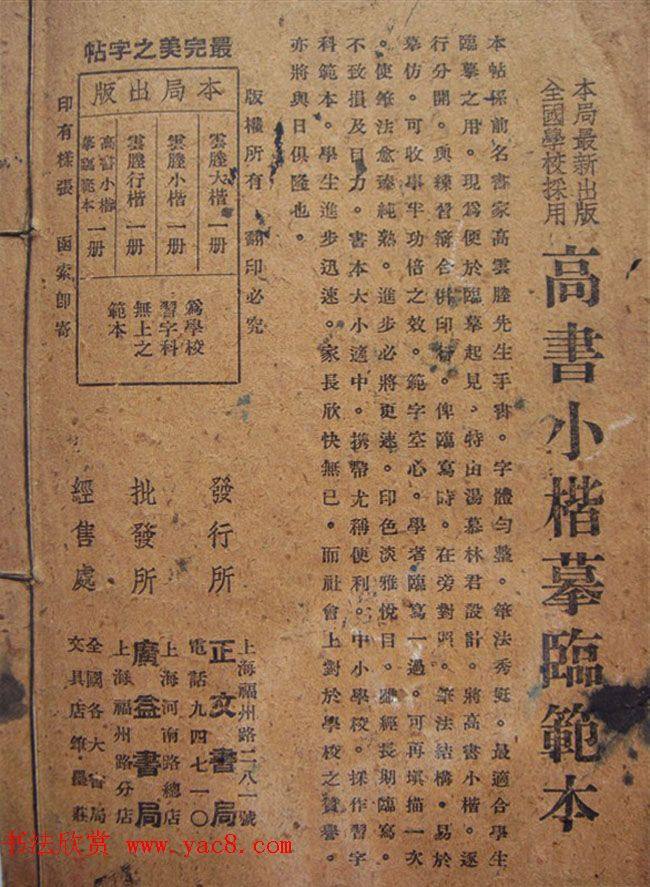 本局最新出版
全國學校採用
高書小楷摹臨範本
本帖係前名書家高雲塍先生手書。字體勻整。筆法秀挺。最適合學生
臨摹之用。現爲便於臨摹起見。特由湯慕林君設計。將高書小楷。逐
行分開。與練習簿合併印行。俾臨寫時。在旁對照。筆法結構。易於
摹仿。可收事半功倍之效。範字空心。學者臨寫一過。可再填描一次
。使筆法愈臻純熟。進步必將更速。印色淡雅悅目。雖經長期臨寫。
不致損及目力。書本大小適中。攜帶尤稱便利。中小學校。採作習字
科範本。學生進步迅速。家長欣快無已。而社會上對於學校之贊譽。
亦將與日俱隆也。
版權所有 翻印必究
最完美之字帖
本局出版
雲塍大楷 一册
雲塍小楷 一册
雲塍行楷 一册
高書小楷摹臨範本 一册
爲學校
習字科
無上之
範本
印有樣張 函索即寄
發行所
正文書局
上海福州路二八一號
電話九四七一〇
批發所
廣益書局
上海河南路總店
上海福州路分店
經售處
全國各大書局
文具店筆墨莊
书法欣赏 www.yac8.com